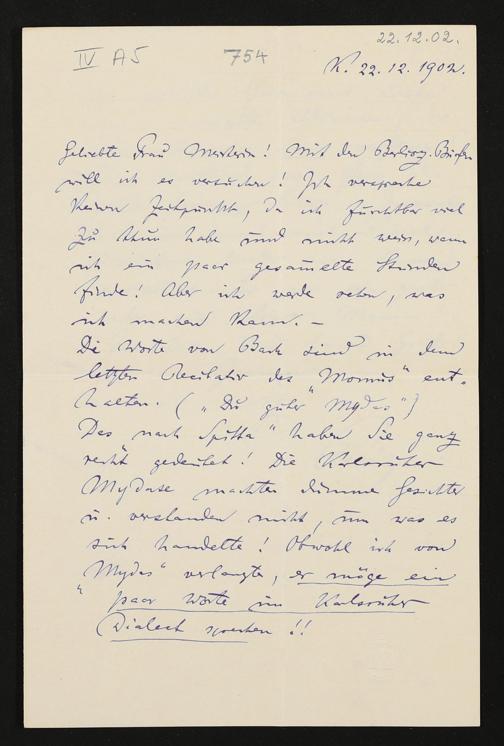 22.12.02.
IV A5 754
K. 22.12.1902.
Geliebte Frau Meisterin! Mit den Berlioz-Briefen
will ich es versuchen! Ich verspreche
keinen Zeitpunkt, da ich furchtbar viel
zu thun habe und nicht weiss, wann
ich ein paar gesam̄elte Stunden
finde! Aber ich werde sehen, was
ich machen kann. –
Die Worte von Bach sind in dem
letzten Recitativ des "Momus" ent-
halten. ( „Du guter Mydas" )
Das "nach Spitta" haben Sie ganz
recht gedeutet! Die Karlsruher
Mydasse machten dumme Gesichter
u. verstanden nicht, um was es
sich handelte! Obwohl ich von
"Mydas" verlangte, er möge ein
paar Worte im Karlsruher
Dialect sprechen!!